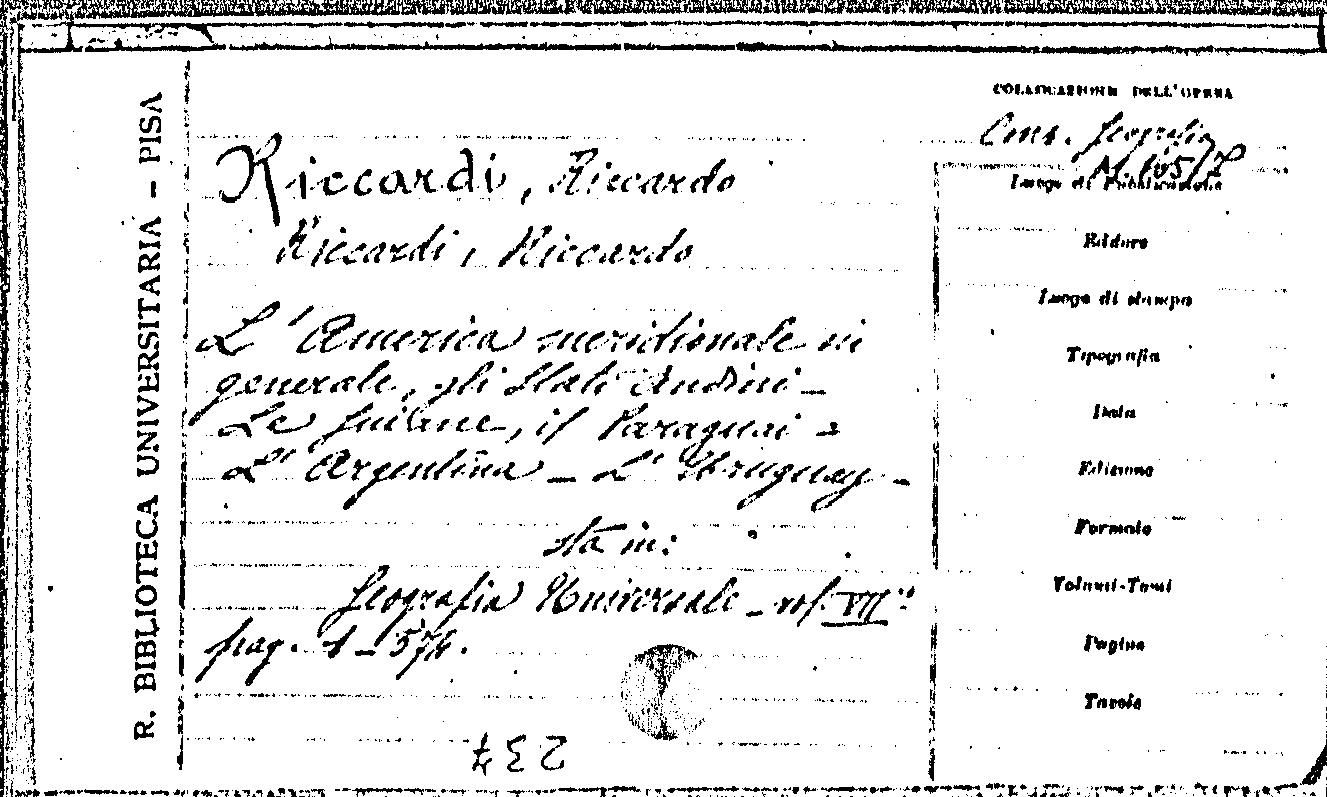 R. BIBLIOTECA UNIVERSITARIA - PISA
COLLOCAZIONE DELL'OPERA
Riccardi, Riccardo
Riccardi, Riccardo
L'America meridionale in
generale, gli Stati Andini -
Le Guiane, il Paraguai -
L'Argentina - L'Uruguay -
sta in:
Geografia Universale - vol. VII
pag. 1 - 574.
237
Geografia
Luogo di Pubblicazione
Editore
Luogo di stampa
Tipografia
Data
Edizione
Formato
Volumi-Tomi
Pagine
Tavole